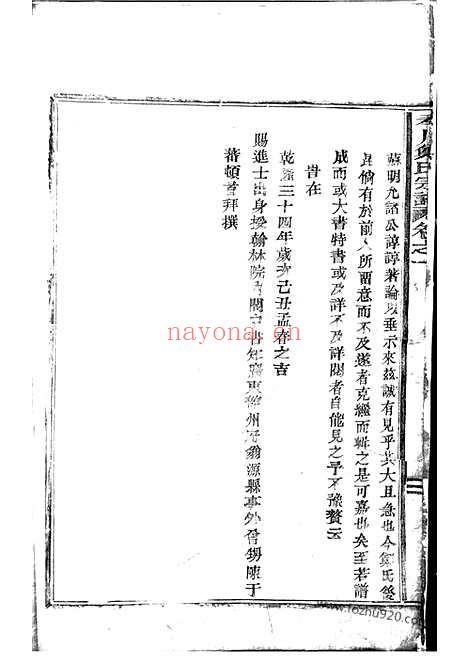 蘇明允諸公諄諄著論以垂示來茲誠有見乎其大且急也今鄭氏後
昆倘有於前人所留意而不及遂者克繼而輯之是可嘉也矣至若譜
成而或大書特書或及詳不及詳閱者自能見之予不豫贅云
旹在
乾隆三十四年歲次己丑孟春之吉
賜進士出身授翰林院 內閣中書年廣東 州 翁源縣事外晉甥陳于
蕃頓首拜撰
氏宗譜卷之一
nayona.cn
www.fozhu920.com